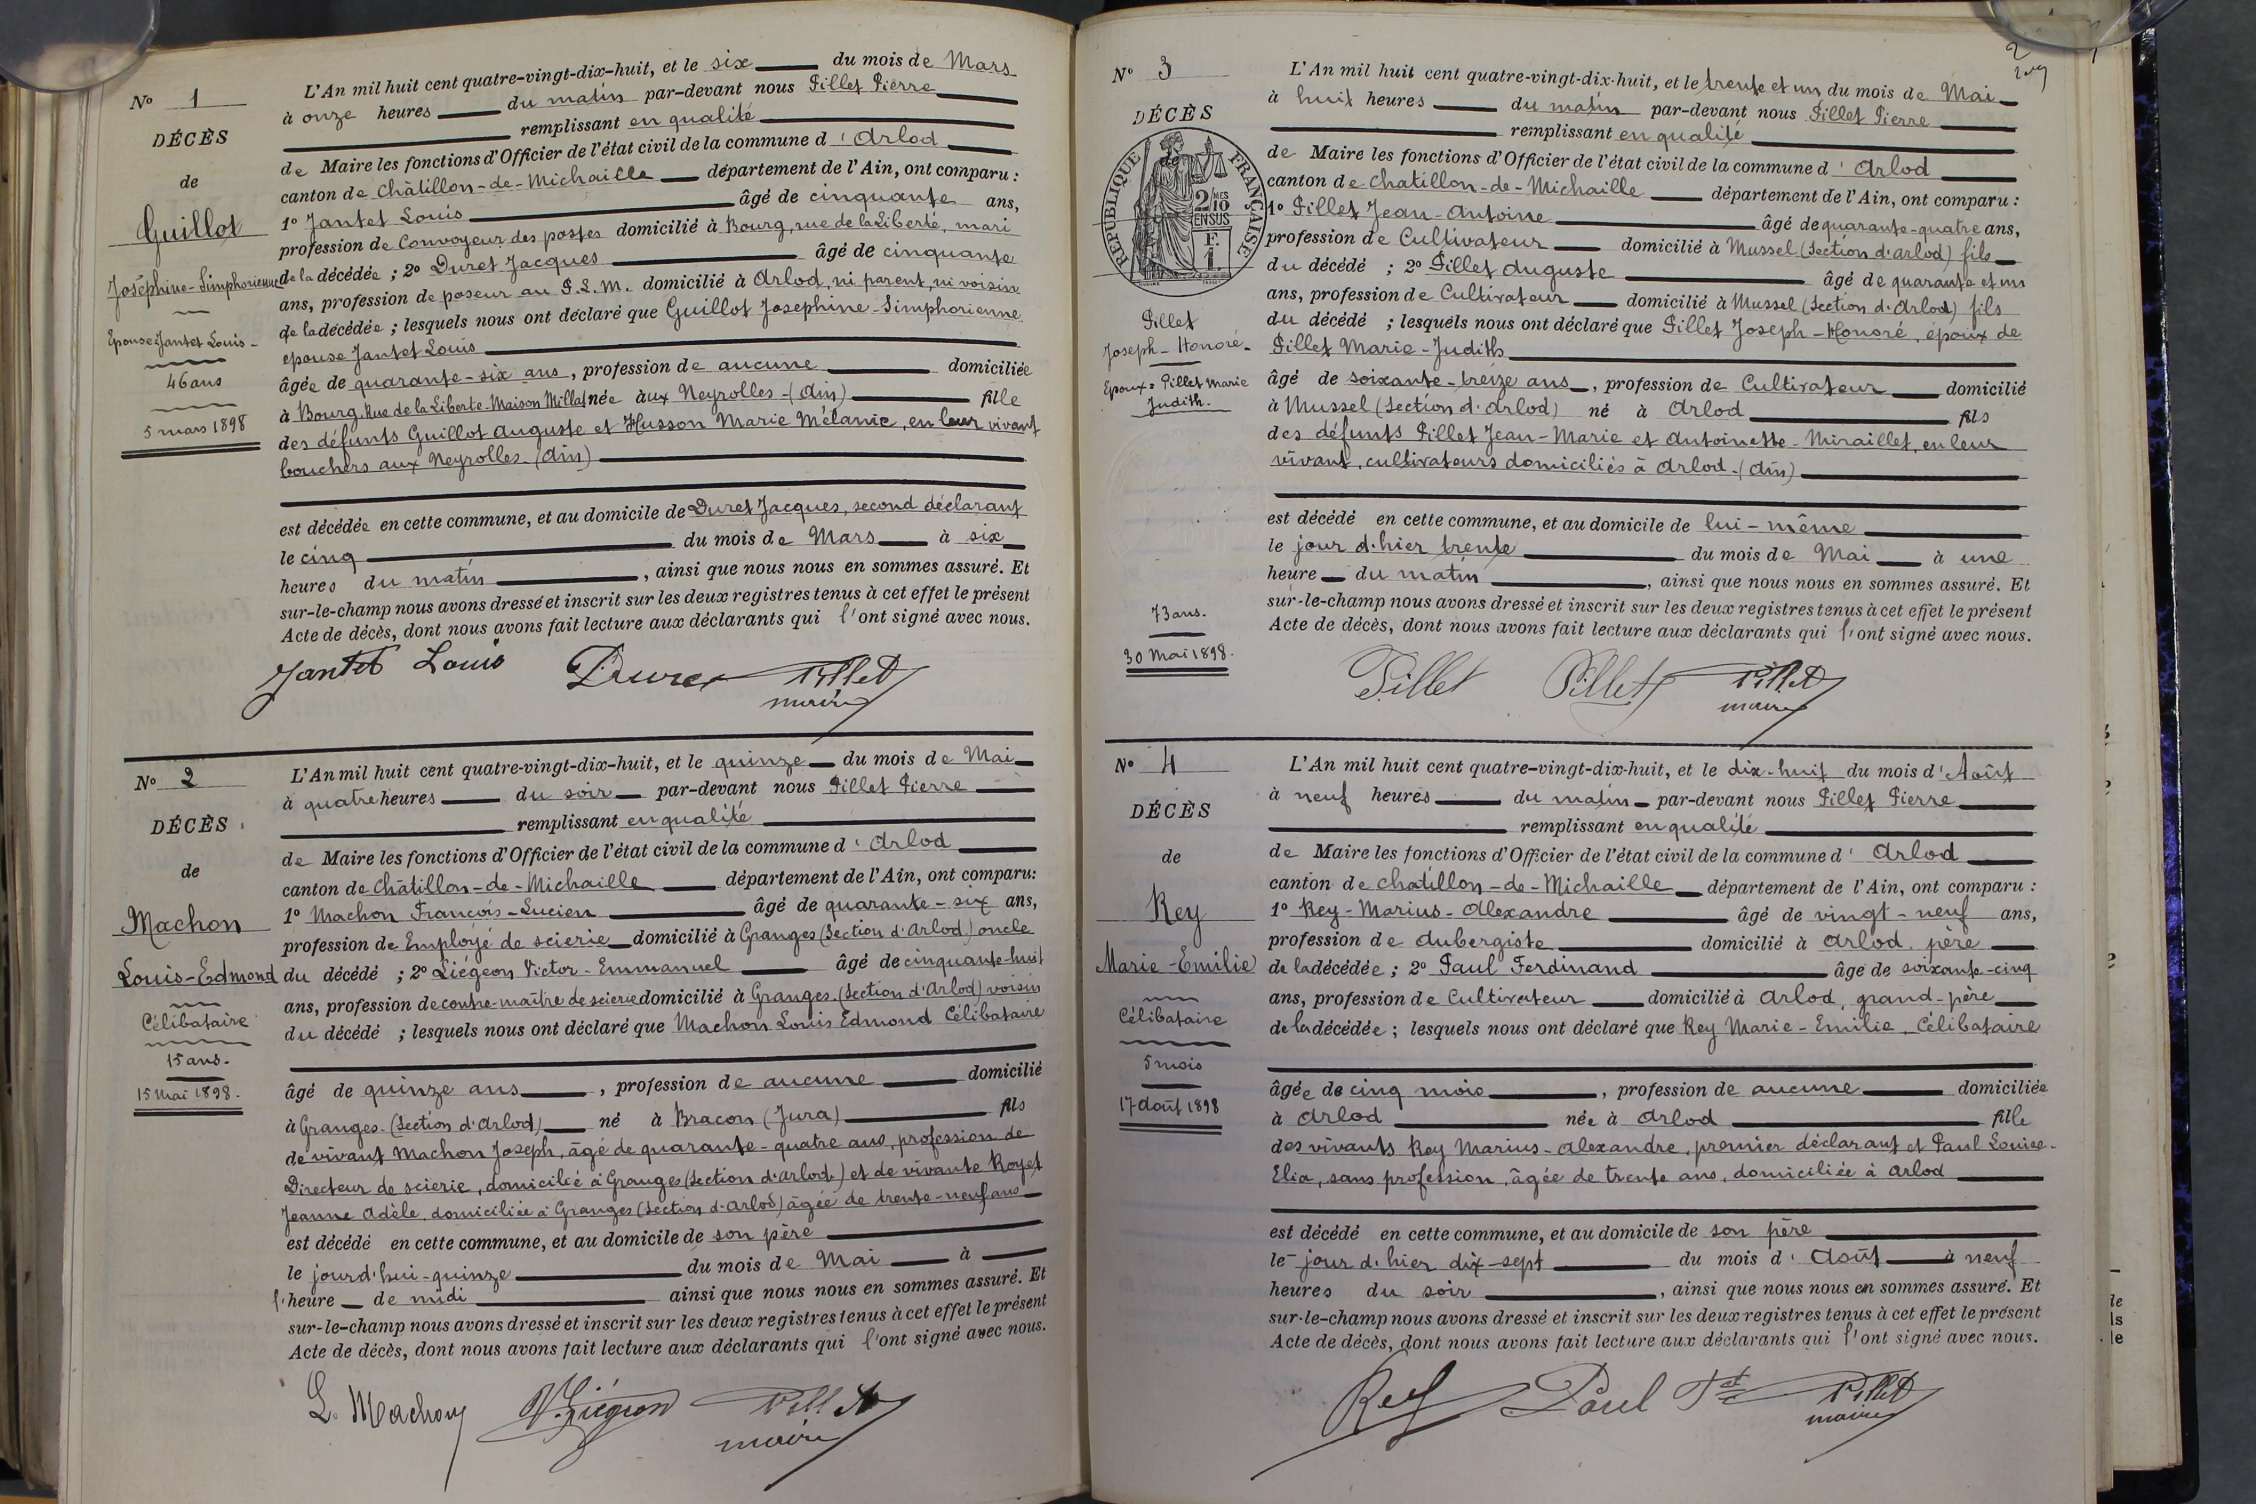 N° 1
DÉCÈS
de
Guillot
Joséphine-Simphorienne
Epouse Jantet Louis
46 ans
5 mars 1898
L'An mil huit cent quatre-vingt-dix-huit, et le six du mois de Mars
à onze heures du matin par-devant nous Pillet Pierre
remplissant en qualité
de Maire les fonctions d'Officier de l'état civil de la commune d'Arlod
canton de Châtillon-de-Michaille département de l'Ain, ont comparu :
1° Jantet Louis âgé de cinquante ans,
profession de Convoyeur des postes domicilié à Bourg, rue de la Liberté, mari
de la décédée ; 2° Duret Jacques âgé de cinquante
ans, profession de poseur au P.L.M. domicilié à Arlod, ni parent, ni voisin
de la décédée ; lesquels nous ont déclaré que Guillot Josephine-Simphorienne
epouse Jantet Louis
âgée de quarante-six ans, profession de aucune domiciliée
à Bourg, Rue de la Liberte-Maison Millet née aux Neyrolles-(Ain) fille
des défunts Guillot Auguste et Husson Marie Mélanie, en leur vivant
bouchers aux Neyrolles (Ain)
est décédée en cette commune, et au domicile de Duret Jacques, second déclarant
le cinq du mois de Mars à six
heures du matin, ainsi que nous nous en sommes assuré. Et
sur-le-champ nous avons dressé et inscrit sur les deux registres tenus à cet effet le présent
Acte de décès, dont nous avons fait lecture aux déclarants qui l'ont signé avec nous.
Jantet Louis Duret Pillet
maire
N° 2
DÉCÈS
de
Machon
Louis-Edmond
Célibataire
15 ans.
15 Mai 1898.
L'An mil huit cent quatre-vingt-dix-huit, et le quinze du mois de Mai
à quatre heures du soir par-devant nous Pillet Pierre
remplissant en qualité
de Maire les fonctions d'Officier de l'état civil de la commune d'Arlod
canton de Châtillon-de-Michaille département de l'Ain, ont comparu :
1° Machon François-Lucien âgé de quarante-six ans,
profession de Employé de scierie domicilié à Granges (Section d'Arlod) oncle
du décédé ; 2° Liégeon Victor-Emmanuel âgé de cinquante-huit
ans, profession de contre-maître de scierie domicilié à Granges (Section d'Arlod) voisin
du décédé ; lesquels nous ont déclaré que Machon Louis Edmond Célibataire
âgé de quinze ans, profession de aucune domicilié
à Granges (Section d'Arlod) né à Bracon (Jura) fils
de vivant Machon Joseph, âgé de quarante-quatre ans, profession de
Directeur de scierie, domicilié à Granges (Section d'Arlod) et de vivante Royet
Jeanne Adèle, domiciliée à Granges (Section d'Arlod) âgée de trente-neuf ans
est décédé en cette commune, et au domicile de son père
le jourd'hui quinze du mois de Mai à
l'heure de midi ainsi que nous nous en sommes assuré. Et
sur-le-champ nous avons dressé et inscrit sur les deux registres tenus à cet effet le présent
Acte de décès, dont nous avons fait lecture aux déclarants qui l'ont signé avec nous.
L. Machon V. Liégeon Pillet
maire
2
N° 3
DÉCÈS
RÉPUBLIQUE FRANÇAISE
2/10
EN SUS
Pillet
Joseph-Honoré
Epoux Pillet Marie
Judith.
73 ans.
30 Mai 1898.
L'An mil huit cent quatre-vingt-dix-huit, et le trente et un du mois de Mai
à huit heures du matin par-devant nous Pillet Pierre
remplissant en qualité
de Maire les fonctions d'Officier de l'état civil de la commune d'Arlod
canton de Chatillon-de-Michaille département de l'Ain, ont comparu :
1° Pillet Jean-Antoine âgé de quarante-quatre ans,
profession de Cultivateur domicilié à Mussel (Section d'Arlod) fils
du décédé ; 2° Pillet Auguste âgé de quarante et un
ans, profession de Cultivateur domicilié à Mussel (Section d'Arlod) fils
du décédé ; lesquels nous ont déclaré que Pillet Joseph-Honoré, époux de
Pillet Marie-Judith
âgé de soixante-treize ans, profession de Cultivateur domicilié
à Mussel (Section d'Arlod) né à Arlod fils
des défunts Pillet Jean-Marie et Antoinette Miraillet, en leur
vivant, cultivateurs domiciliés à Arlod-(Ain)
est décédé en cette commune, et au domicile de lui-même
le jour d'hier trente du mois de Mai à une
heure du matin, ainsi que nous nous en sommes assuré. Et
sur-le-champ nous avons dressé et inscrit sur les deux registres tenus à cet effet le présent
Acte de décès, dont nous avons fait lecture aux déclarants qui l'ont signé avec nous.
Pillet Pillet Pillet
maire
N° 4
DÉCÈS
de
Rey
Marie-Emilie
Célibataire
5 mois
17 Août 1898
L'An mil huit cent quatre-vingt-dix-huit, et le dix-huit du mois d'Août
à neuf heures du matin par-devant nous Pillet Pierre
remplissant en qualité
de Maire les fonctions d'Officier de l'état civil de la commune d'Arlod
canton de Chatillon-de-Michaille département de l'Ain, ont comparu :
1° Rey-Marius-Alexandre âgé de vingt-neuf ans,
profession de Aubergiste domicilié à Arlod, père
de la décédée ; 2° Paul Ferdinand âgé de soixante-cinq
ans, profession de Cultivateur domicilié à Arlod, grand-père
de la décédée ; lesquels nous ont déclaré que Rey Marie-Emilie, Célibataire
âgée de cinq mois, profession de aucune domiciliée
à Arlod née à Arlod fille
des vivants Rey Marius-Alexandre, premier déclarant et Paul Louise-
Elia, sans profession, âgée de trente ans, domiciliée à Arlod
est décédé en cette commune, et au domicile de son père
le jour d'hier dix-sept du mois d'Août à neuf
heures du soir, ainsi que nous nous en sommes assuré. Et
sur-le-champ nous avons dressé et inscrit sur les deux registres tenus à cet effet le présent
Acte de décès, dont nous avons fait lecture aux déclarants qui l'ont signé avec nous.
Rey Paul Fd Pillet
maire